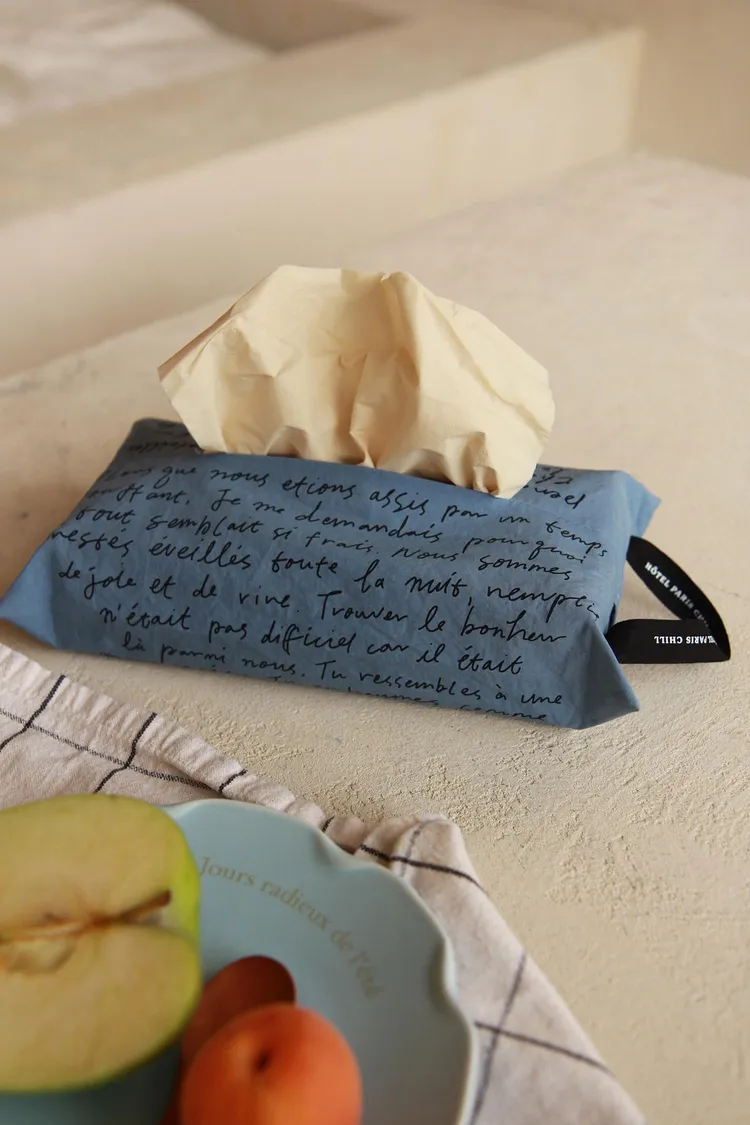 que nous etions assis par un temps
Je me demandais pourquoi
tout semblait si frais. Nous sommes
restés éveillés toute la nuit,
de joie et de vivre. Trouver le bonheur
n'était pas difficiel car il était
là parmi nous. Tu ressembles à une
HÔTEL PARIS
PARIS CHILL
Jours radieux de l'été